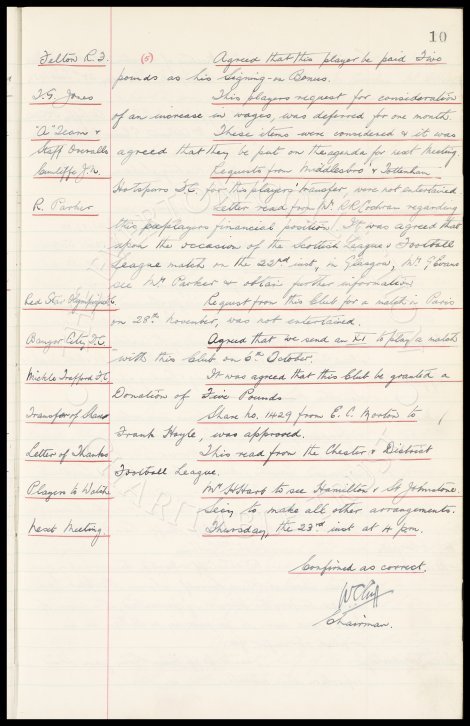 10
Felton R.F. (5) Agreed that this player be paid Five
pounds as his Signing-on Bonus.
T.G. Jones This players request for consideration
of an increase in wages, was deferred for one month.
"A" Teams & These items were considered & it was
Staff Overalls agreed that they be put on the agenda for next meeting.
Cunliffe J.N. Requests from Middlesbro & Tottenham
Hotspurs F.C. for this players' transfer, were not entertained
R. Parker Letter read from Mr. R.R. Cochran regarding
this players financial position. It was agreed that
upon the occasion of the Scottish League v Football
League match on the 22nd inst, in Glasgow, Mr G. Evans
see Mr Parker & obtain further information
Red Star Olympique Request from this Club for a match in Paris
on 28th November, was not entertained.
Bangor City F.C. Agreed that we send an XI to play a match
with this Club on 6th October.
Mickle Trafford F.C. It was agreed that this Club be granted a
Donation of Five Pounds
Transfer of Share Share No. 1429 from E.C. Morton to
Frank Hoyle, was approved.
Letter of Thanks This read from the Chester & District
Football League.
Players to Watch Mr to see Hamilton v St Johnstone.
Secy to make all other arrangements.
Next Meeting. Thursday, the 23rd inst at 4 pm.
Confirmed as correct.
W C Cuff
Chairman.